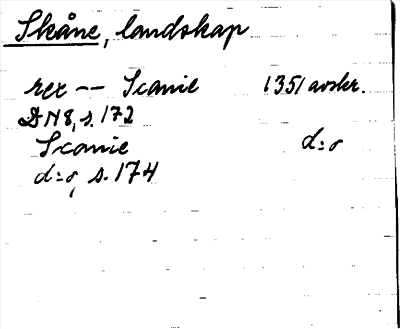 Skåne, landskap
rex -- Scanie 1351 avskr.
DN 8, s. 172
Scanie d:o
d:o, s. 174